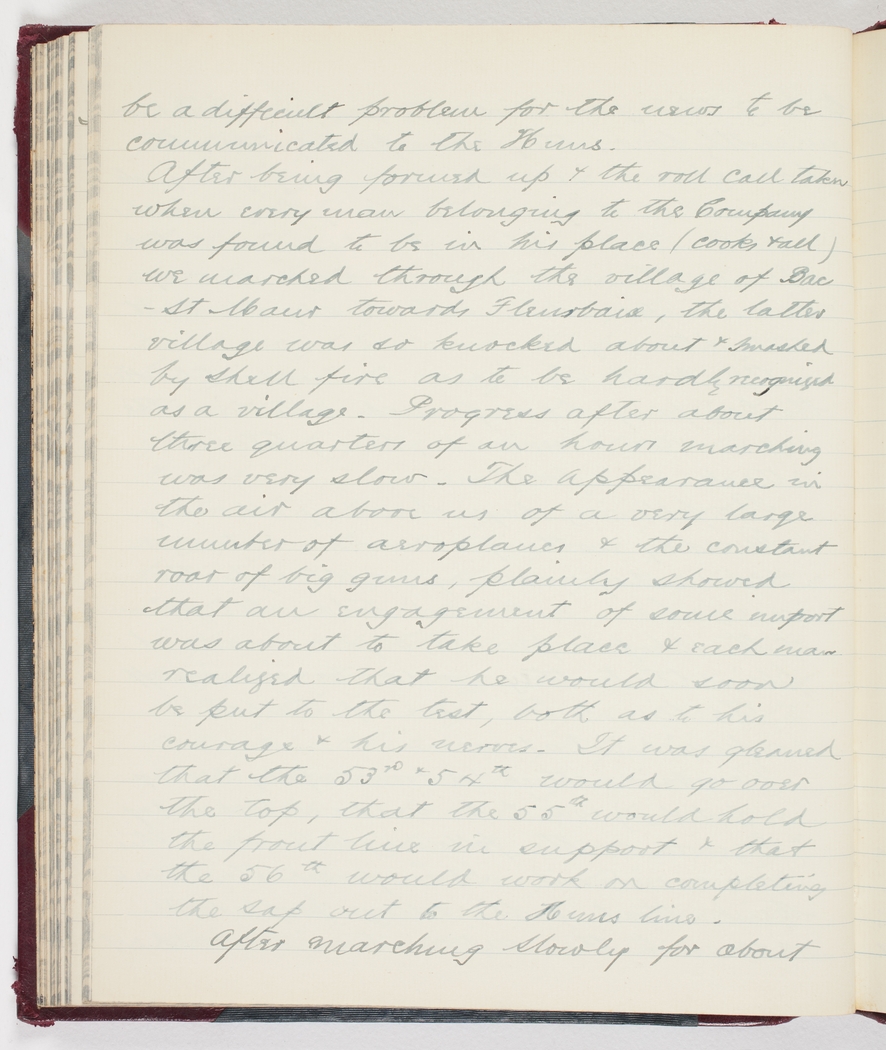 be a difficult problem for the news to be
communicated to the Huns.
After being formed up & the roll call taken
when every man belonging to the Company
was found to be in his place (cooks & all)
we marched through the village of Bac
-St Maur towards Fleurbaix, the latter
village was so knocked about & smashed
by shell fire as to be hardly recognised
as a village. Progress after about
three quarters of an hours marching
was very slow. The appearance in
the air above us of a very large
number of aeroplanes & the constant
roar of big guns, plainly showed
that an engagement of some import
was about to take place & each man
realized that he would soon
be put to the test, both as to his
courage & his nerves. It was gleaned
that the 53rd & 54th would go over
the top, that the 55th would hold
the front line in support & that
the 56th would work on completing
the sap out to the Huns line.
After marching slowly for about